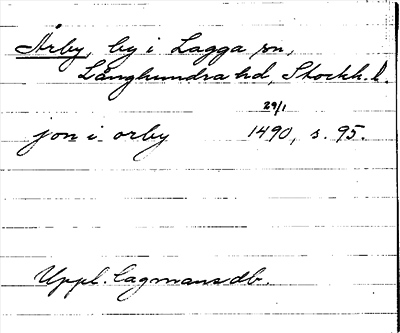 Årby, by i Lagga sn,
Långhundra hd, Stockh. l.
29/1
jon i orby 1490, s. 95.
Uppl. lagmansdb.